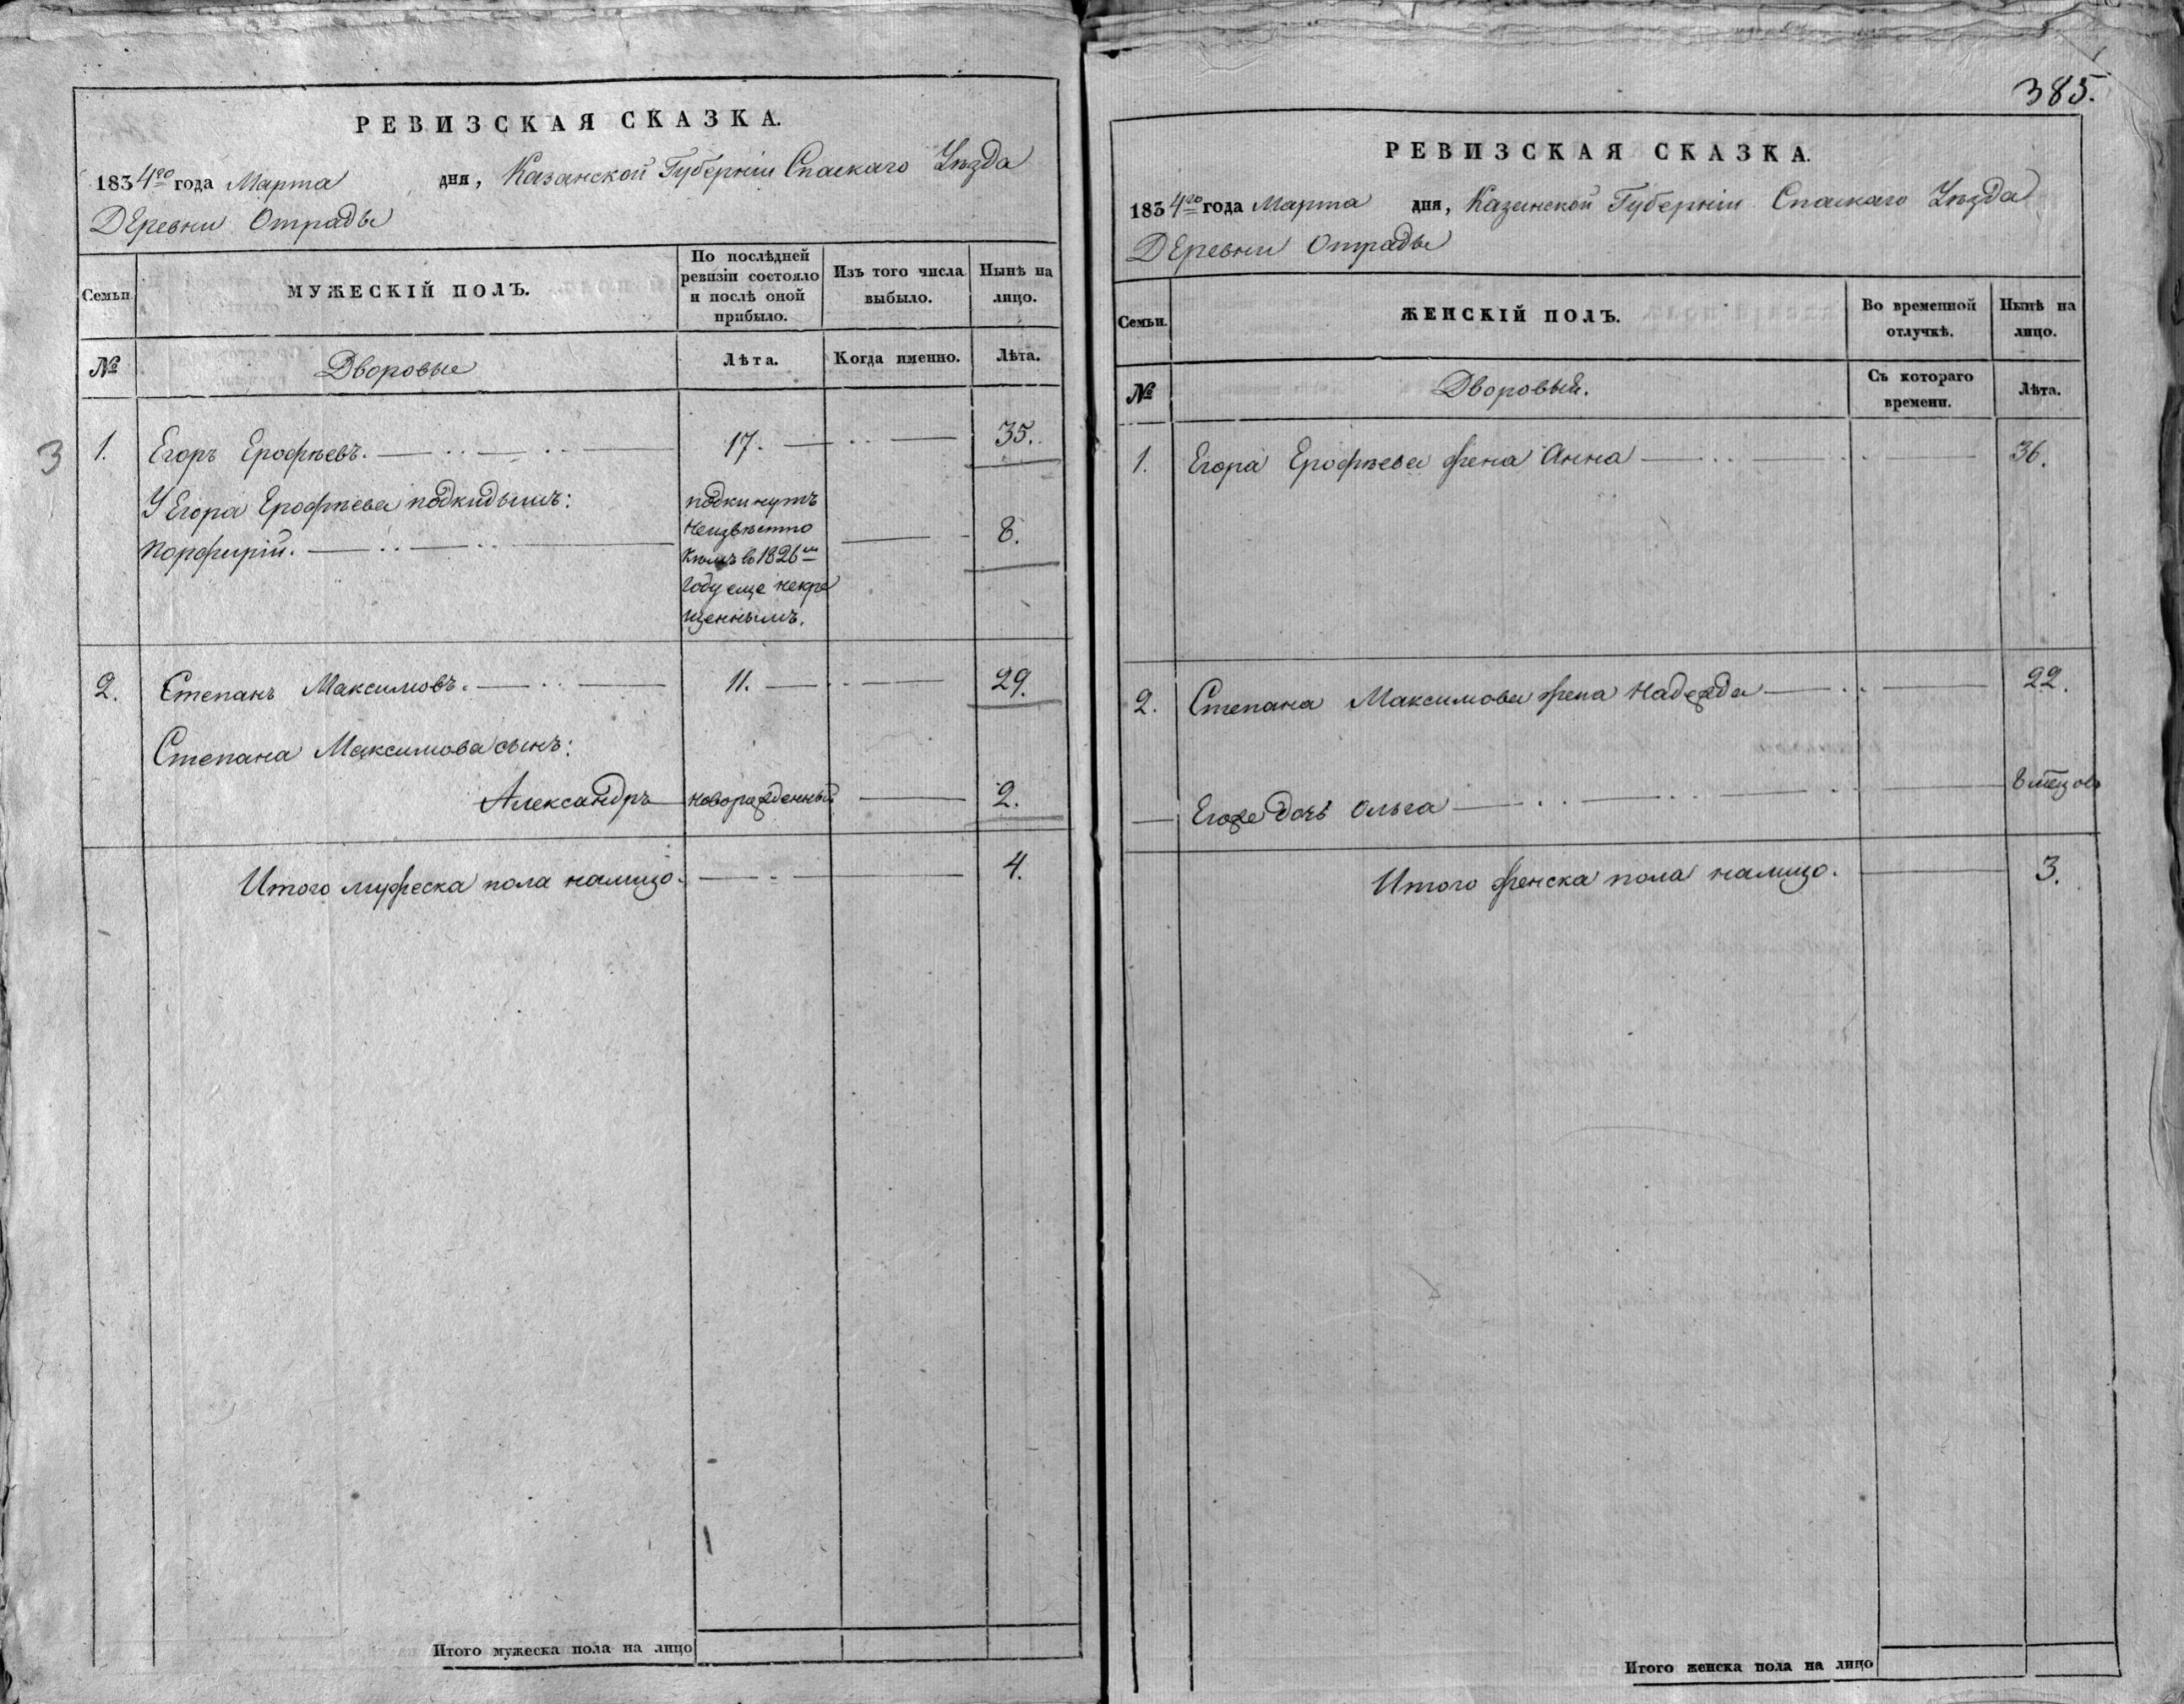 РЕВИЗСКАЯ СКАЗКА.
1834го года Марта дня, Казанской Губерніи Спаскаго Уѣзда
Деревни Отрады
Семьи
МУЖЕСКІЙ ПОЛЪ.
По послѣдней ревизіи состояло и послѣ оной прибыло.
Изъ того числа выбыло.
Нынѣ на лицо.
№
Дворовые
Лѣта.
Когда именно.
Лѣта.
3
1. Егоръ Ерофѣевъ. 17. 35.
У Егора Ерофѣева подкидышъ:
Порфирій. 8.
подкинутъ
неизвѣстно
кѣмъ в 1826м
году еще некре
щеннымъ.
2. Степанъ Максимовъ. 11. 29.
Степана Максимова сынъ:
Александръ новорожденный 2.
Итого мужеска пола налицо. 4.
Итого мужеска пола на лицо
385.
РЕВИЗСКАЯ СКАЗКА.
1834го года Марта дня, Казанской Губерніи Спаскаго Уѣзда
Деревни Отрады
Семьи.
ЖЕНСКІЙ ПОЛЪ.
Во временной отлучкѣ.
Нынѣ на лицо.
№
Дворовыя.
Съ котораго времени.
Лѣта.
1. Егора Ерофѣева жена Анна 36.
2. Степана Максимова жена Надежда 22.
Егоже дочь Ольга 8 мѣцовъ
Итого женска пола налицо. 3.
Итого женска пола на лицо